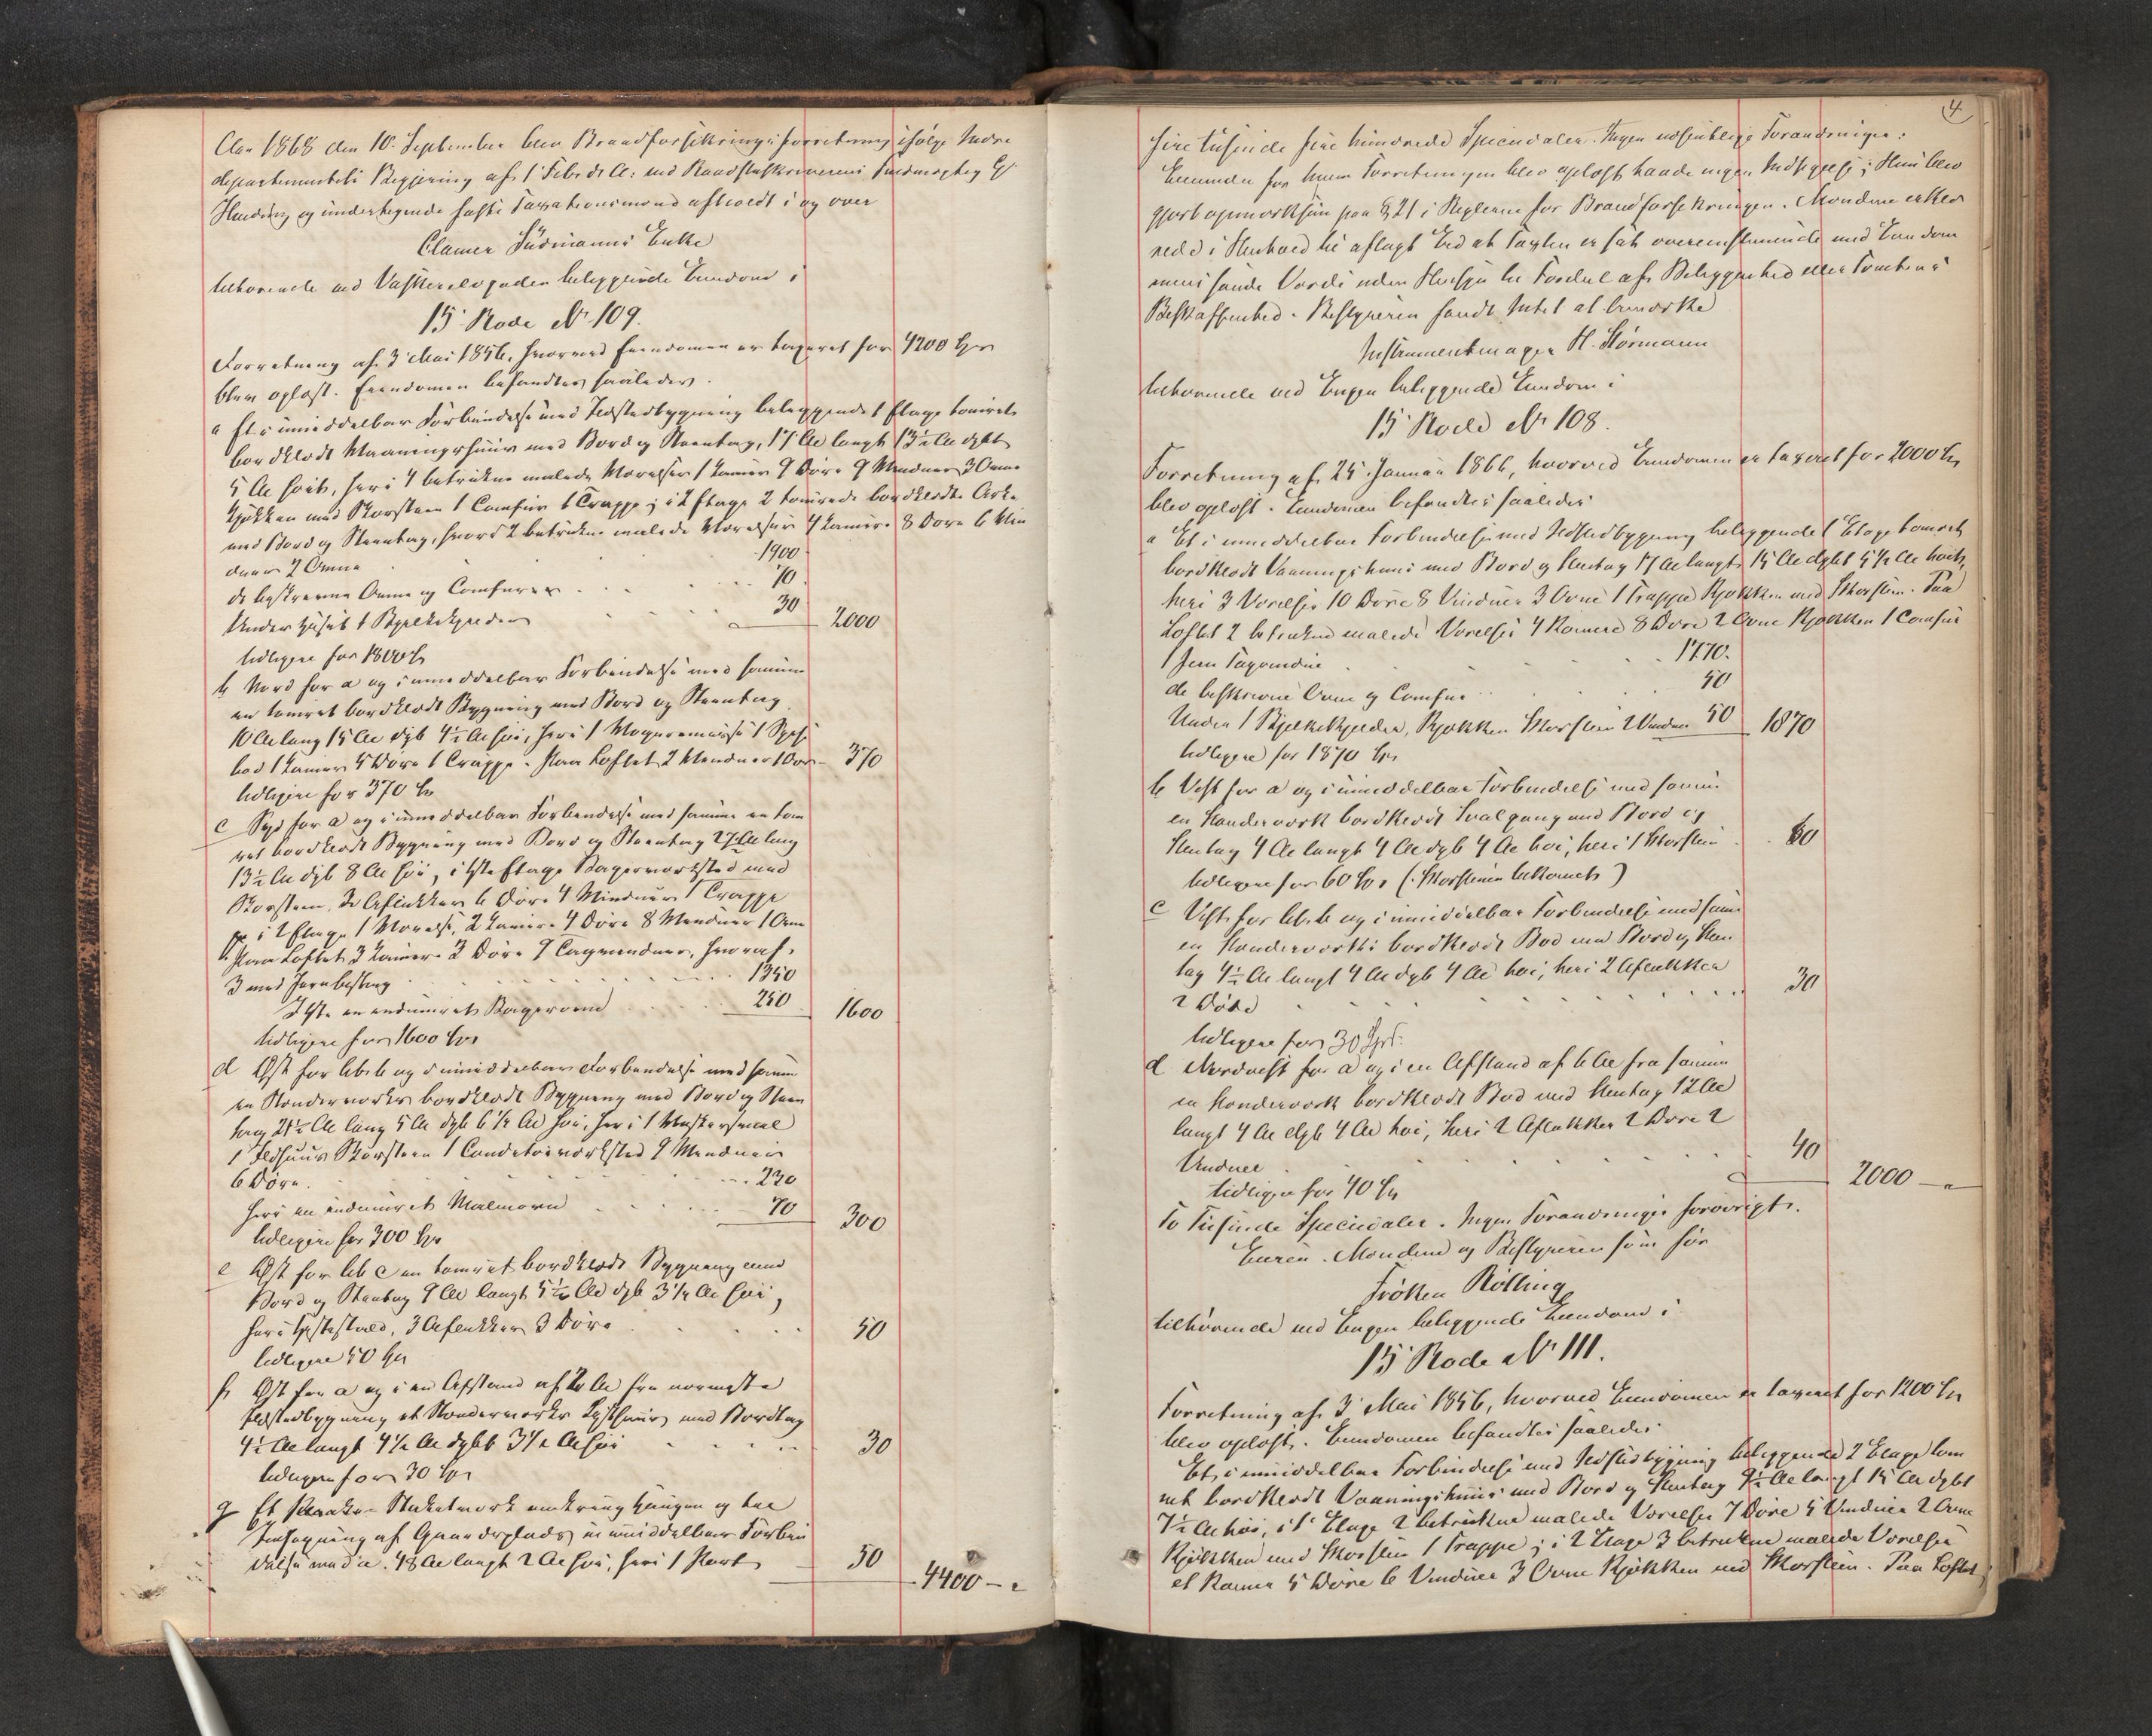 Aar 1868 den 10. September blev Brandforsikringsforretning ifølge Indre
departementets Begjæring af 1 Febr. d. A: ved Raadstueskriverens Fuldmægtig
og undertegnede faste Taxationsmænd afholdt i og over
Clamer Sürmanns Enke
tilhørende ved Vaskerelvgaden beliggende Eiendom i
15' Rode No 109.
Forretning af 3 Mai 1856, hvorved Eiendomen er taxeret for 4200 Spd
blev oplæst. Eiendomen befandtes saaledes.
a Et i umiddelbar Forbindelse med Ildstedbygning beliggende 1 Etage tømret
bordklædt Vaaningshuus med Bord og Steentag, 17 Al langt 13½ Al dybt
5 Al høit, heri 4 betrukne malede Værelser 1 Kamer 9 Døre 9 Vinduer 3 Ovne
Kjøkken med Skorsteen 1 Comfur 1 Trappe; i 2 Etage 2 tømrede bordklædte Arke
med Bord og Steentag, hvori 2 betrukne malede Værelser 4 Kamere 8 Døre 6 Vin
duer 2 Ovne 1900
de beskrevne Ovne og Comfurer 70
Under Huset 1 Bjelkekjelder 30 2000
tidligere for 1800 Spd
b Nord for a og i umiddelbar Forbindelse med samme
en tømret bordklædt Bygning med Bord og Steentag
10 Al lang 15 Al dyb 4½ Al høi, heri 1 1 Spise
bod 1 Kamer 5 Døre 1 Trappe. Paa Loftet 2 Vinduer 1 Dør 370
tidligere for 370 Spd
c Syd for a og i umiddelbar Forbindelse med samme en tøm
ret bordklædt Bygning med Bord og Steentag 27 Al lang
13½ Al dyb 8 Al høi, i 1ste Etage Bagerværksted med
Skorsteen, 3 Aflukker 6 Døre 4 Vinduer 1 Trappe
i 2 Etage 1 Værelse, 2 Kamere 4 Døre 8 Vinduer 1 Ovn
Paa Loftet 3 Kamere 3 Døre 9 Tagvinduer, hvoraf
3 med Jernbeslag 1350
en indmuret Bagerovn 250 1600
tidligere for 1600 Spd
d Øst for Litr. b og i umiddelbar Forbindelse med samme
en Stønderværks bordklædt Bygning med Bord og Steen
tag 21½ Al lang 5 Al dyb 6½ Al høi, heri 1
1 Ildhuus Skorsteen 1 Conditorværksted 9 Vinduer
6 Døre. 230
heri en indmuret Malmovn 70 300
tidligere for 300 Spd
e Øst for Litr. c en tømret bordklædt Bygning med
Bord og Steentag 9 Al langt 5½ Al dyb 3½ Al høi,
heri Hestestald, 3 Aflukker 3 Døre 50
tidligere 50 Spd
f Øst for a og i en Afstand af Al fra nærmeste
Ildstedbygning et Stønderværks Lysthuus med Bordtag
4½ Al langt 4½ Al dybt 3½ Al høi 30
tidligere for 30 Spd
g Et Stakitværk omkring Haugen og en
Indhegning af Gaardsplads i umiddelbar Forbin
delse med a. 48 Al langt 2 Al høi, heri 1 Port 50 4400 –
4
fire tusinde fire hundrede Speciedaler. Ingen udførlige Forandringer.
Eierinden for hvem Forretningen blev oplæst havde ingen Indsigelse; Hun blev
gjort opmærksom paa § 21 i Reglerne for Brandforsikringen. Mændene erklæ
rede i Henhold til aflagt Ed at Taxten er sat overensstemmende med Eiendom
mens sande Værdi uden Hensyn til Fordel af Beliggenhed eller Tomtens
Beskaffenhed. Bestyreren fandt Intet at bemærke
Instrumentmager H. Hørmann
tilhørende ved Engen beliggende Eiendom i
15' Rode No 108.
Forretning af 25 Januar 1866, hvorved Eiendomen er taxeret for 2000 Spd
blev oplæst. Eiendomen befandtes saaledes
a Et i umiddelbar Forbindelse med Ildstedbygning beliggende 1 Etage tømret
bordklædt Vaaningshuus med Bord og Steentag 17 Al langt 15 Al dybt 5½ Al høit,
heri 3 Værelser 10 Døre 8 Vinduer 3 Ovne 1 Trappe Kjøkken med Skorsteen. Paa
Loftet 2 betrukne malede Værelser 4 Kamere 8 Døre 2 Ovne Kjøkken 1 Comfur
1 Jern Tagvindue 1770.
de beskrevne Ovne og Comfur 50
Under 1 Bjelkekjelder, Kjøkken Skorsteen 2 Vinduer 50 1870
tidligere for 1870 Spd
b Vest for a og i umiddelbar Forbindelse med samme
en Stønderværk bordklædt Svalgang med Bord og
Steentag 4 Al langt 4 Al dyb 4 Al høi, heri 1 Skorsteen 60
tidligere for 60 Spd (: Skorstenen bekomet)
c Vest for Litr. b og i umiddelbar Forbindelse med samme
en Stønderværks bordklædt Bod med Bord og Steen
tag 4½ Al langt 4 Al dyb 4 Al høi, heri 2 Aflukker
2 Døre 30
tidligere for 30 Spd.
d Nordvest for a og i en Afstand af 6 Al fra samme
en Stønderværk bordklædt Bod med Steentag 12 Al
langt 4 Al dyb 4 Al høi, heri 2 Aflukker 2 Døre 2
Vinduer 40
tidligere for 40 Spd 2000 –
To Tusinde Speciedaler. Ingen Forandringer forøvrigt.
Eieren. Mændene og Bestyreren som før
Frøken Rölling
tilhørende ved Engen beliggende Eiendom i
15' Rode No 111.
Forretning af 3 Mai 1856, hvorved Eiendomen er taxeret for 1200 Spd
blev oplæst. Eiendomen befandtes saaledes
Et i umiddelbar Forbindelse med Ildstedbygning beliggende 2 Etage tøm
ret bordklædt Vaaningshuus med Bord og Steentag 9½ Al langt 15 Al dybt
7½ Al høi, i 1' Etage 2 betrukne malede Værelser 7 Døre 5 Vinduer 2 Ovne
Kjøkken med Skorsteen 1 Trappe; i 2 Etage 3 betrukne malede Værelser
et Kamer 5 Døre 6 Vinduer 3 Ovne Kjøkken med Skorsteen. Paa Loftet